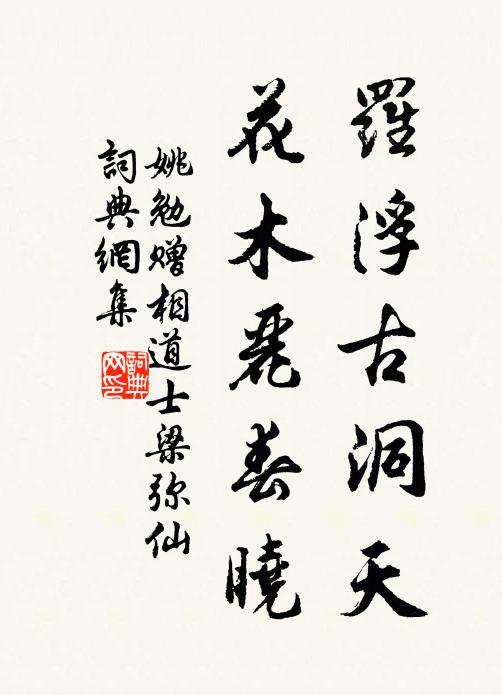 羅浮古洞天
花木麗春曉
姚勉贈相道士梁弥仙
詞典網集
詞典网印